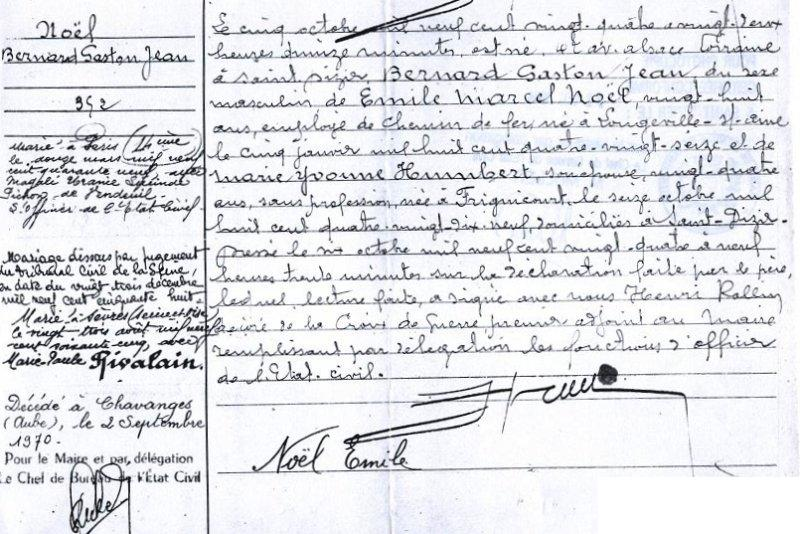 Noël
Bernard Gaston Jean
392
Marié à Paris (14ème
le douze mars mil neuf
cent quarante neuf avec
Magali Uranie
Pichon de Vendeuil
L'officier de l'Etat Civil
Mariage dissous par jugement
du tribunal Civil de la Seine,
en date du vingt trois décembre
mil neuf cent cinquante huit.
Marié à Sèvres (Seine et Oise
le vingt-trois août mil neuf
cent soixante cinq avec
Marie-Paule Rivalain.
Décédé à Chavanges
(Aube), le 2 Septembre
1970.
Pour le Maire et par délégation
Le Chef de Bureau de l'État Civil
Le cinq octobre mil neuf cent vingt-quatre à vingt-deux
heures quinze minutes, est né, 41 av. alsace Lorraine
à Saint Dizier, Bernard Gaston Jean, du sexe
masculin de Emile Marcel Noël, vingt-huit
ans, employé de chemin de fer, né à Longeville-
le cinq janvier mil huit cent quatre-vingt-seize et de
Marie Yvonne Humbert, son épouse, vingt-quatre
ans, sans profession, née à Frignicourt, le seize octobre mil
huit cent quatre-vingt-dix-neuf, domiciliés à Saint-Dizier.
Dressé le six octobre mil neuf cent vingt-quatre à neuf
heures trente minutes sur la déclaration faite par le père,
lequel lecture faite, a signé avec nous Henri
décoré de la Croix de Guerre premier adjoint au Maire
remplissant par délégation les fonctions d'officier
de l'Etat-civil.
Noël Emile